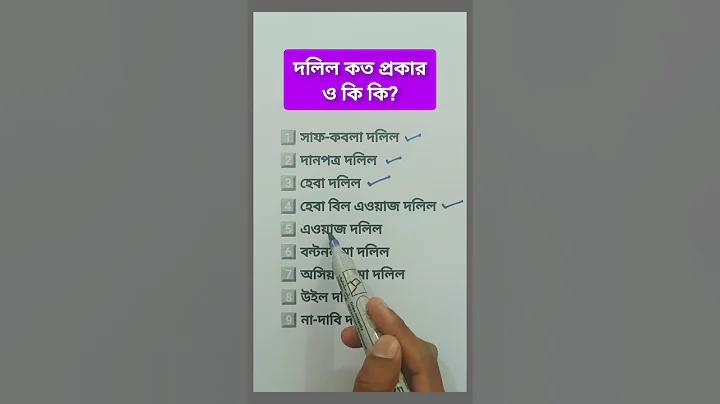 দলিল কত প্রকার
ও কি কি?
1 সাফ-কবলা দলিল
2 দানপত্র দলিল
3 হেবা দলিল
4 হেবা বিল এওয়াজ দলিল
5 এওয়াজ দলিল
6 দলিল
7 দলিল
8 উইল
9 না-দাবি